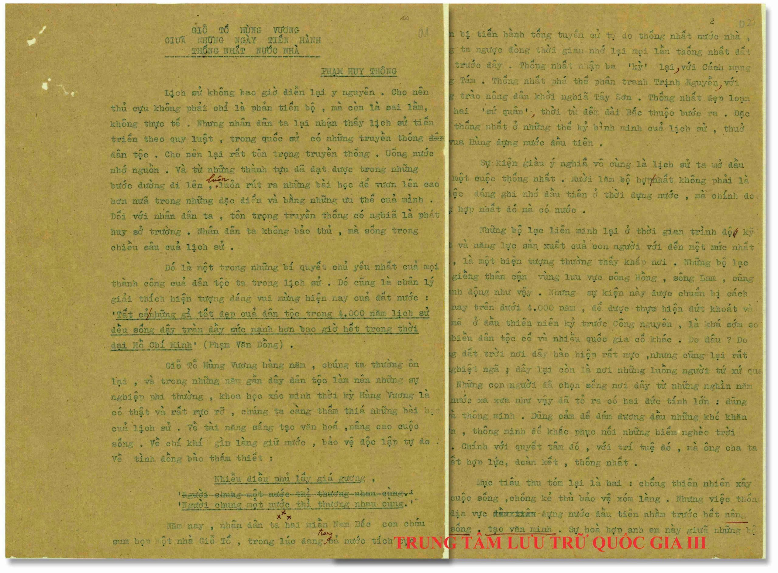 GIỖ TỔ HÙNG VƯƠNG
GIỮA NHỮNG NGÀY TIẾN HÀNH
THỐNG NHẤT NƯỚC NHÀ
PHẠM HUY THÔNG
Lịch sử không bao giờ diễn lại y nguyên . Cho nên
thủ cựu không phải chỉ là phản tiến bộ , mà còn là sai lầm,
không thực tế . Nhưng nhân dân ta lại nhận thấy lịch sử tiến
triển theo quy luật , trong quốc sử có những truyền thống
dân tộc . Cho nên lại rất tôn trọng truyền thống . Uống nước
nhớ nguồn . Và từ những thành tựu đã đạt được trong những
bước đường đi lên , luôn rút ra những bài học để vươn lên cao
hơn nữa trong những đặc điểm và bằng những ưu thế của mình .
Đối với nhân dân ta , tôn trọng truyền thống có nghĩa là phát
huy sở trường . Nhân dân ta không bảo thủ , mà sống trong
chiều sâu của lịch sử .
Đó là một trong những bí quyết chủ yếu nhất của mọi
thành công của dân tộc ta trong lịch sử . Đó cũng là chân lý
giải thích hiện tượng đáng vui mừng hiện nay của đất nước :
"Tất cả những gì tốt đẹp của dân tộc trong 4.000 năm lịch sử
đều sống dậy trên đầy sức mạnh hơn bao giờ hết trong thời
đại Hồ Chí Minh" (Phạm Văn Đồng) .
Giỗ Tổ Hùng Vương hàng năm , chúng ta thường ôn
lại , và trong những năm gần đây dân tộc làm nên những sự
nghiệp phi thường , khoa học xác minh thời kỳ Hùng Vương là
có thật và rất rực rỡ , chúng ta càng thấm thía những bài học
của lịch sử . Về tài năng sáng tạo văn hoá , nâng cao cuộc
sống . Về chí khí gìn làng giữ nước , bảo vệ độc lập tự do .
Về tình đồng bào thắm thiết :
Nhiễu điều phủ lấy giá gương ,
"Người chung một nước thì thương nhau cùng."
"Người chung một nước thì thương nhau cùng."
xxx
Năm nay , nhân dân ta hai miền Nam Bắc con cháu
sum họp một nhà Giỗ Tổ , trong lúc đang cả nước tích
2
n bị tiến hành tổng tuyển cử tự do thống nhất nước nhà ,
g ta ngược dòng thời gian nhớ lại mọi lần thống nhất đất
trước đây . Thống nhất Nhật ba "kỳ" lại , với Cách mạng
Tám . Thống nhất phá thế phân tranh Trịnh Nguyễn , với
g trào nông dân khởi nghĩa Tây Sơn . Thống nhất dẹp loạn
hai "sứ quân", thời từ đêm dài Bắc thuộc bước ra . Các
thống nhất ở những thế kỷ bình minh của lịch sử , thuở
vua Hùng dựng nước đầu tiên .
Sự kiện giàu ý nghĩa vô cùng là lịch sử ta mở đầu
một cuộc thống nhất . Mười lăm bộ hợp nhất không phải là
việc đáng ghi nhớ đầu tiên ở thời dựng nước , mà chính do
ự hợp nhất đó mà có nước .
Những bộ lạc liên minh lại ở thời gian trình độ kỹ
và năng lực sản xuất của con người với đến một mức nhất
, là một hiện tượng thường thấy khắp nơi . Những bộ lạc
giềng thân cận vùng lưu vực sông Hồng , sông Lam , cũng
nh động như vậy . Nhưng sự kiện này được chuẩn bị cách
nay trên dưới 4.000 năm , để được thực hiện dứt khoát và
mẽ ở đầu thiên niên kỷ trước Công nguyên , là khá sớm so
nhiều dân tộc cổ và nhiều quốc gia cổ khác . Do đâu ? Do
g đất trời nơi đây báo hiện rất rực , nhưng cũng lại rất
nghiệt ngã ; đây lại còn là nơi những luồng người tứ xứ qua
Những con người đã chọn sống nơi đây từ những nghìn năm
nước xa xưa như vậy đã tỏ ra có hai đức tính lớn : dũng
và thông minh . Dũng cảm để đảm đương đầu những khó khăn
ơn , thông minh để khắc phục nổi những hiểm nghèo trời
. Chính với quyết tâm đó , với trí tuệ đó , mà ông cha ta
ột hợp lực, đoàn kết , thống nhất .
Mục tiêu thu tóm lại là hai : chống thiên nhiên xây
cuộc sống , chống kẻ thù bảo vệ xóm làng . Nhưng việc thốn
dựng nước đầu tiên nhằm trước hết nâng
sống , tạo văn minh . Sự hoà hợp anh em này giữa những bộ
TRUNG TÂM LƯU TRỮ QUỐC GIA III